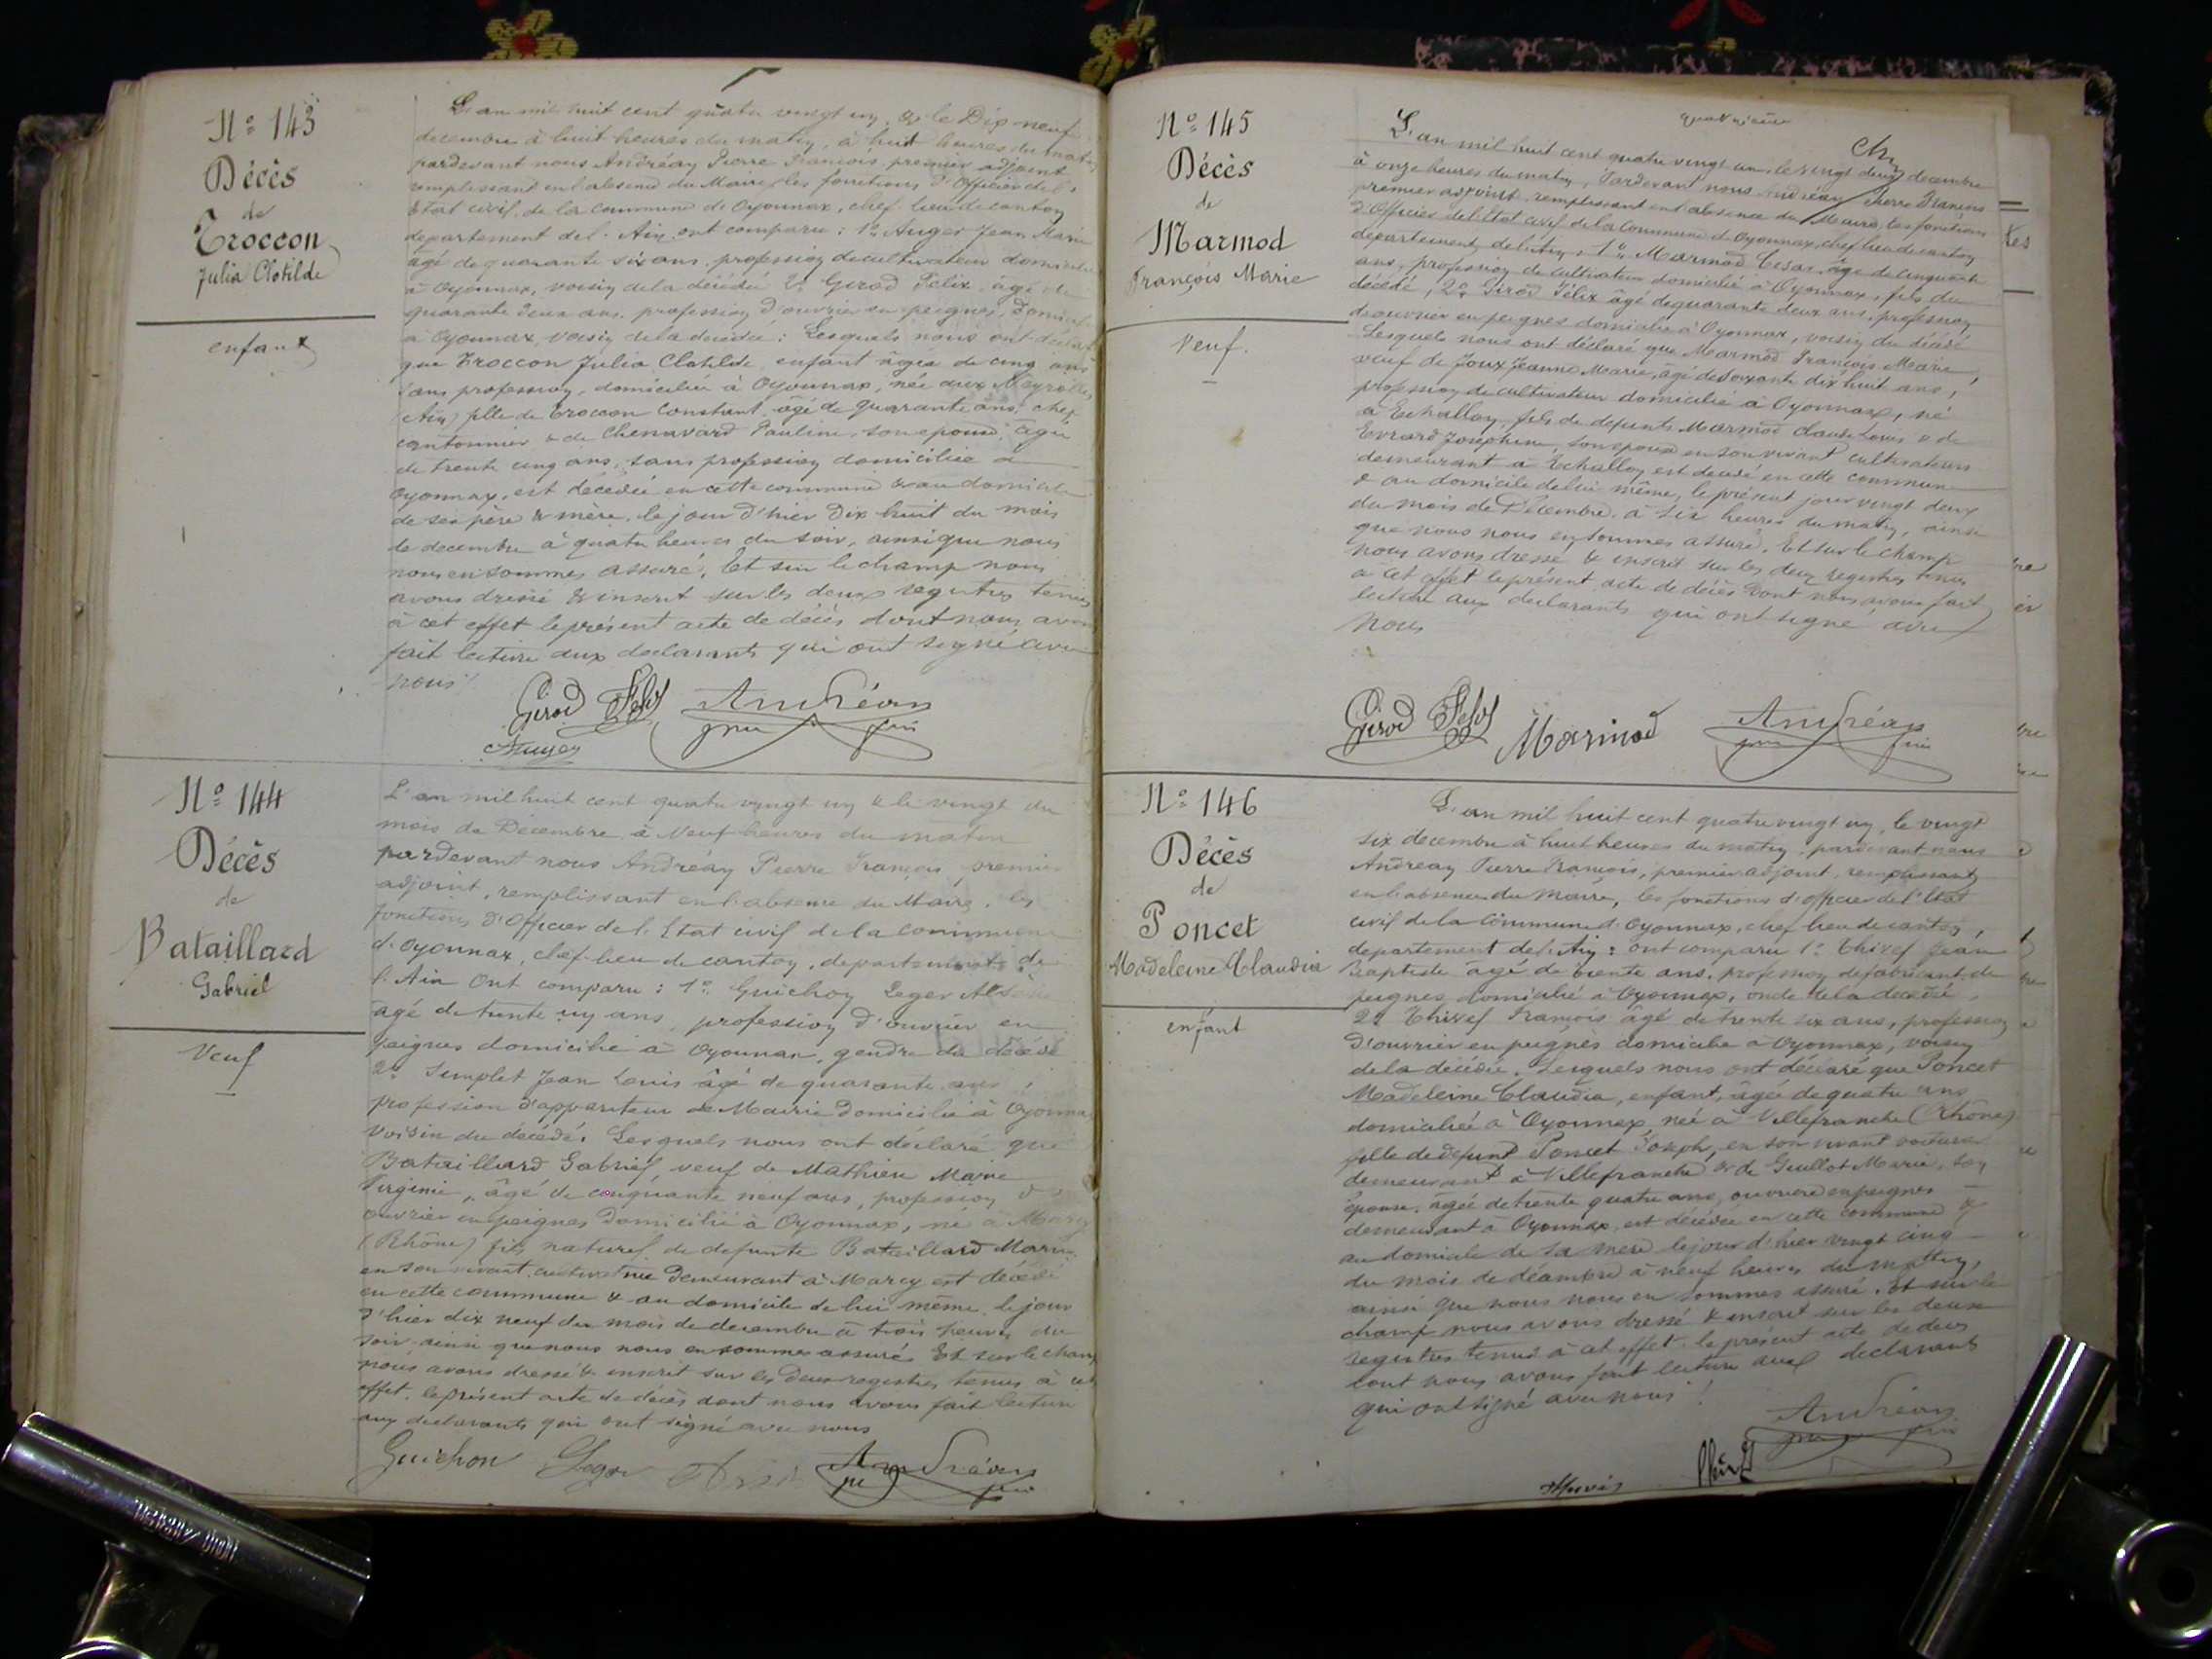 N° 143
Décès
de
Troccon
Julia Clotilde
enfant
L'an mil huit cent quatre vingt un, & le Dix neuf
decembre à huit heures du matin, à huit heures du matin
pardevant nous Andréan Pierre François premier adjoint
remplissant en l'absence du Maire, les fonctions d'Officier de l'
Etat civil de la Commune de Oyonnax, chef lieu de canton
departement de l'Ain ont comparu : 1° Auger Jean Marie
âgé de quarante six ans, profession de cultivateur domicilié
à Oyonnax, voisin de la décédée 2° Girod Félix, agé de
quarante deux ans, profession d'ouvrier en peignes, domicilié
à Oyonnax, voisin de la décédée : Lesquels nous ont déclaré
que Troccon Julia Clotilde, enfant âgée de cinq ans
sans profession, domiciliée à Oyonnax, née aux Neyrolles
(Ain) fille de Troccon Constant, âgé de quarante ans, chef
cantonnier & de Chenavard Pauline, son épouse, agée
de trente cinq ans, sans profession domiciliée à
Oyonnax, est décédée en cette commune & au domicile
de ses père & mère, le jour d'hier Dix huit du mois
de decembre à quatre heures du soir, ainsi que nous
nous en sommes assuré. Et sur le champ nous
avons dressé & inscrit sur les deux registres tenus
à cet effet le présent acte de décès dont nous avons
fait lecture aux declarants qui ont signé avec
nous
Girod Felix Andréan
Auger
N° 144
Décès
de
Bataillard
Gabriel
Veuf
L'an mil huit cent quatre vingt un & le vingt du
mois de Décembre à Neuf heures du matin
pardevant nous Andréan Pierre François, premier
adjoint, remplissant en l'absence du Maire, les
fonctions d'Officier de l'Etat civil de la commune
d'Oyonnax, chef-lieu de canton, departement de
l'Ain Ont comparu : 1° Guichon Leger
âgé de trente un ans, profession d'ouvrier en
peignes domicilié à Oyonnax, gendre du décédé
2° Jean Louis âgé de quarante ans,
profession d'appariteur de Mairie domicilié à Oyonnax
voisin du décédé. Lesquels nous ont déclaré que
Bataillard Gabriel, veuf de Mathieu Marie
Virginie, âgé de cinquante neuf ans, profession d'
ouvrier en peignes domicilié à Oyonnax, né à Marcy
(Rhône) fils naturel de defunte Bataillard Marie
en son vivant cultivatrice demeurant à Marcy est décédé
en cette commune & au domicile de lui même, le jour
d'hier dix neuf du mois de decembre à trois heures du
soir ainsi que nous nous en sommes assurés Et sur le champ
nous avons dressé & inscrit sur les deux registres tenus à cet
effet, le présent acte de décès dont nous avons fait lecture
aux declarants qui ont signé avec nous
Guichon Leger Andréan
N° 145
Décès
de
Marmod
François Marie
Veuf.
L'an mil huit cent quatre vingt un, le vingt deux decembre
à onze heures du matin, Pardevant nous Andréan Pierre François
premier adjoint remplissant en l'absence du Maire, les fonctions
d'Officier de l'Etat civil de la Commune d'Oyonnax, chef lieu de canton
departement de l'Ain, 1° Marmod Cesar âgé de cinquante
ans, profession de cultivateur domicilié à Oyonnax, fils du
décédé, 2° Girod Félix âgé de quarante deux ans, profession
d'ouvrier en peignes domicilié à Oyonnax, voisin du décédé
Lesquels nous ont déclaré que Marmod François Marie,
veuf de Joux Jeanne Marie, âgé de soixante dix huit ans,
profession de cultivateur domicilié à Oyonnax, né
à Echallon, fils de defunts Marmod Claude Louis & de
Evrard Josephine, son épouse en son vivant cultivateurs
demeurant à Echallon est décédé en cette commune
& au domicile de lui même, le présent jour vingt deux
du mois de Décembre à six heures du matin, ainsi
que nous nous en sommes assuré. Et sur le champ
nous avons dressé & inscrit sur les deux registres tenus
à cet effet le présent acte de décès dont nous avons fait
lecture aux declarants qui ont signé avec
nous
Girod Felix Marmod Andréan
N° 146
Décès
de
Poncet
Madeleine Claudia
enfant
L'an mil huit cent quatre vingt un, le vingt
six decembre à huit heures du matin, pardevant nous
Andréan Pierre François, premier adjoint, remplissant
en l'absence du Maire, les fonctions d'officier de l'Etat
civil de la Commune d'Oyonnax, chef lieu de canton,
departement de l'Ain : ont comparu 1° Thivel Jean
Baptiste âgé de trente ans, profession de fabricant de
peignes domicilié à Oyonnax, oncle de la décédée,
2° Thivel François âgé de trente six ans, profession
d'ouvrier en peignes domicilié à Oyonnax, voisin
de la décédée. Lesquels nous ont déclaré que Poncet
Madeleine Claudia, enfant, âgée de quatre ans
domiciliée à Oyonnax, née à Villefranche (Rhône)
fille de defunt Poncet Joseph, en son vivant
demeurant à Villefranche & de Guillot Marie, son
épouse, âgée de trente quatre ans, ouvrière en peignes
demeurant à Oyonnax, est décédée en cette commune &
au domicile de sa mère le jour d'hier vingt cinq
du mois de décembre à neuf heures du mattin,
ainsi que nous nous en sommes assuré. Et sur le
champ nous avons dressé & inscrit sur les deux
registres tenus à cet effet le présent acte de décès
dont nous avons fait lecture aux declarants
qui ont signé avec nous
Andréan